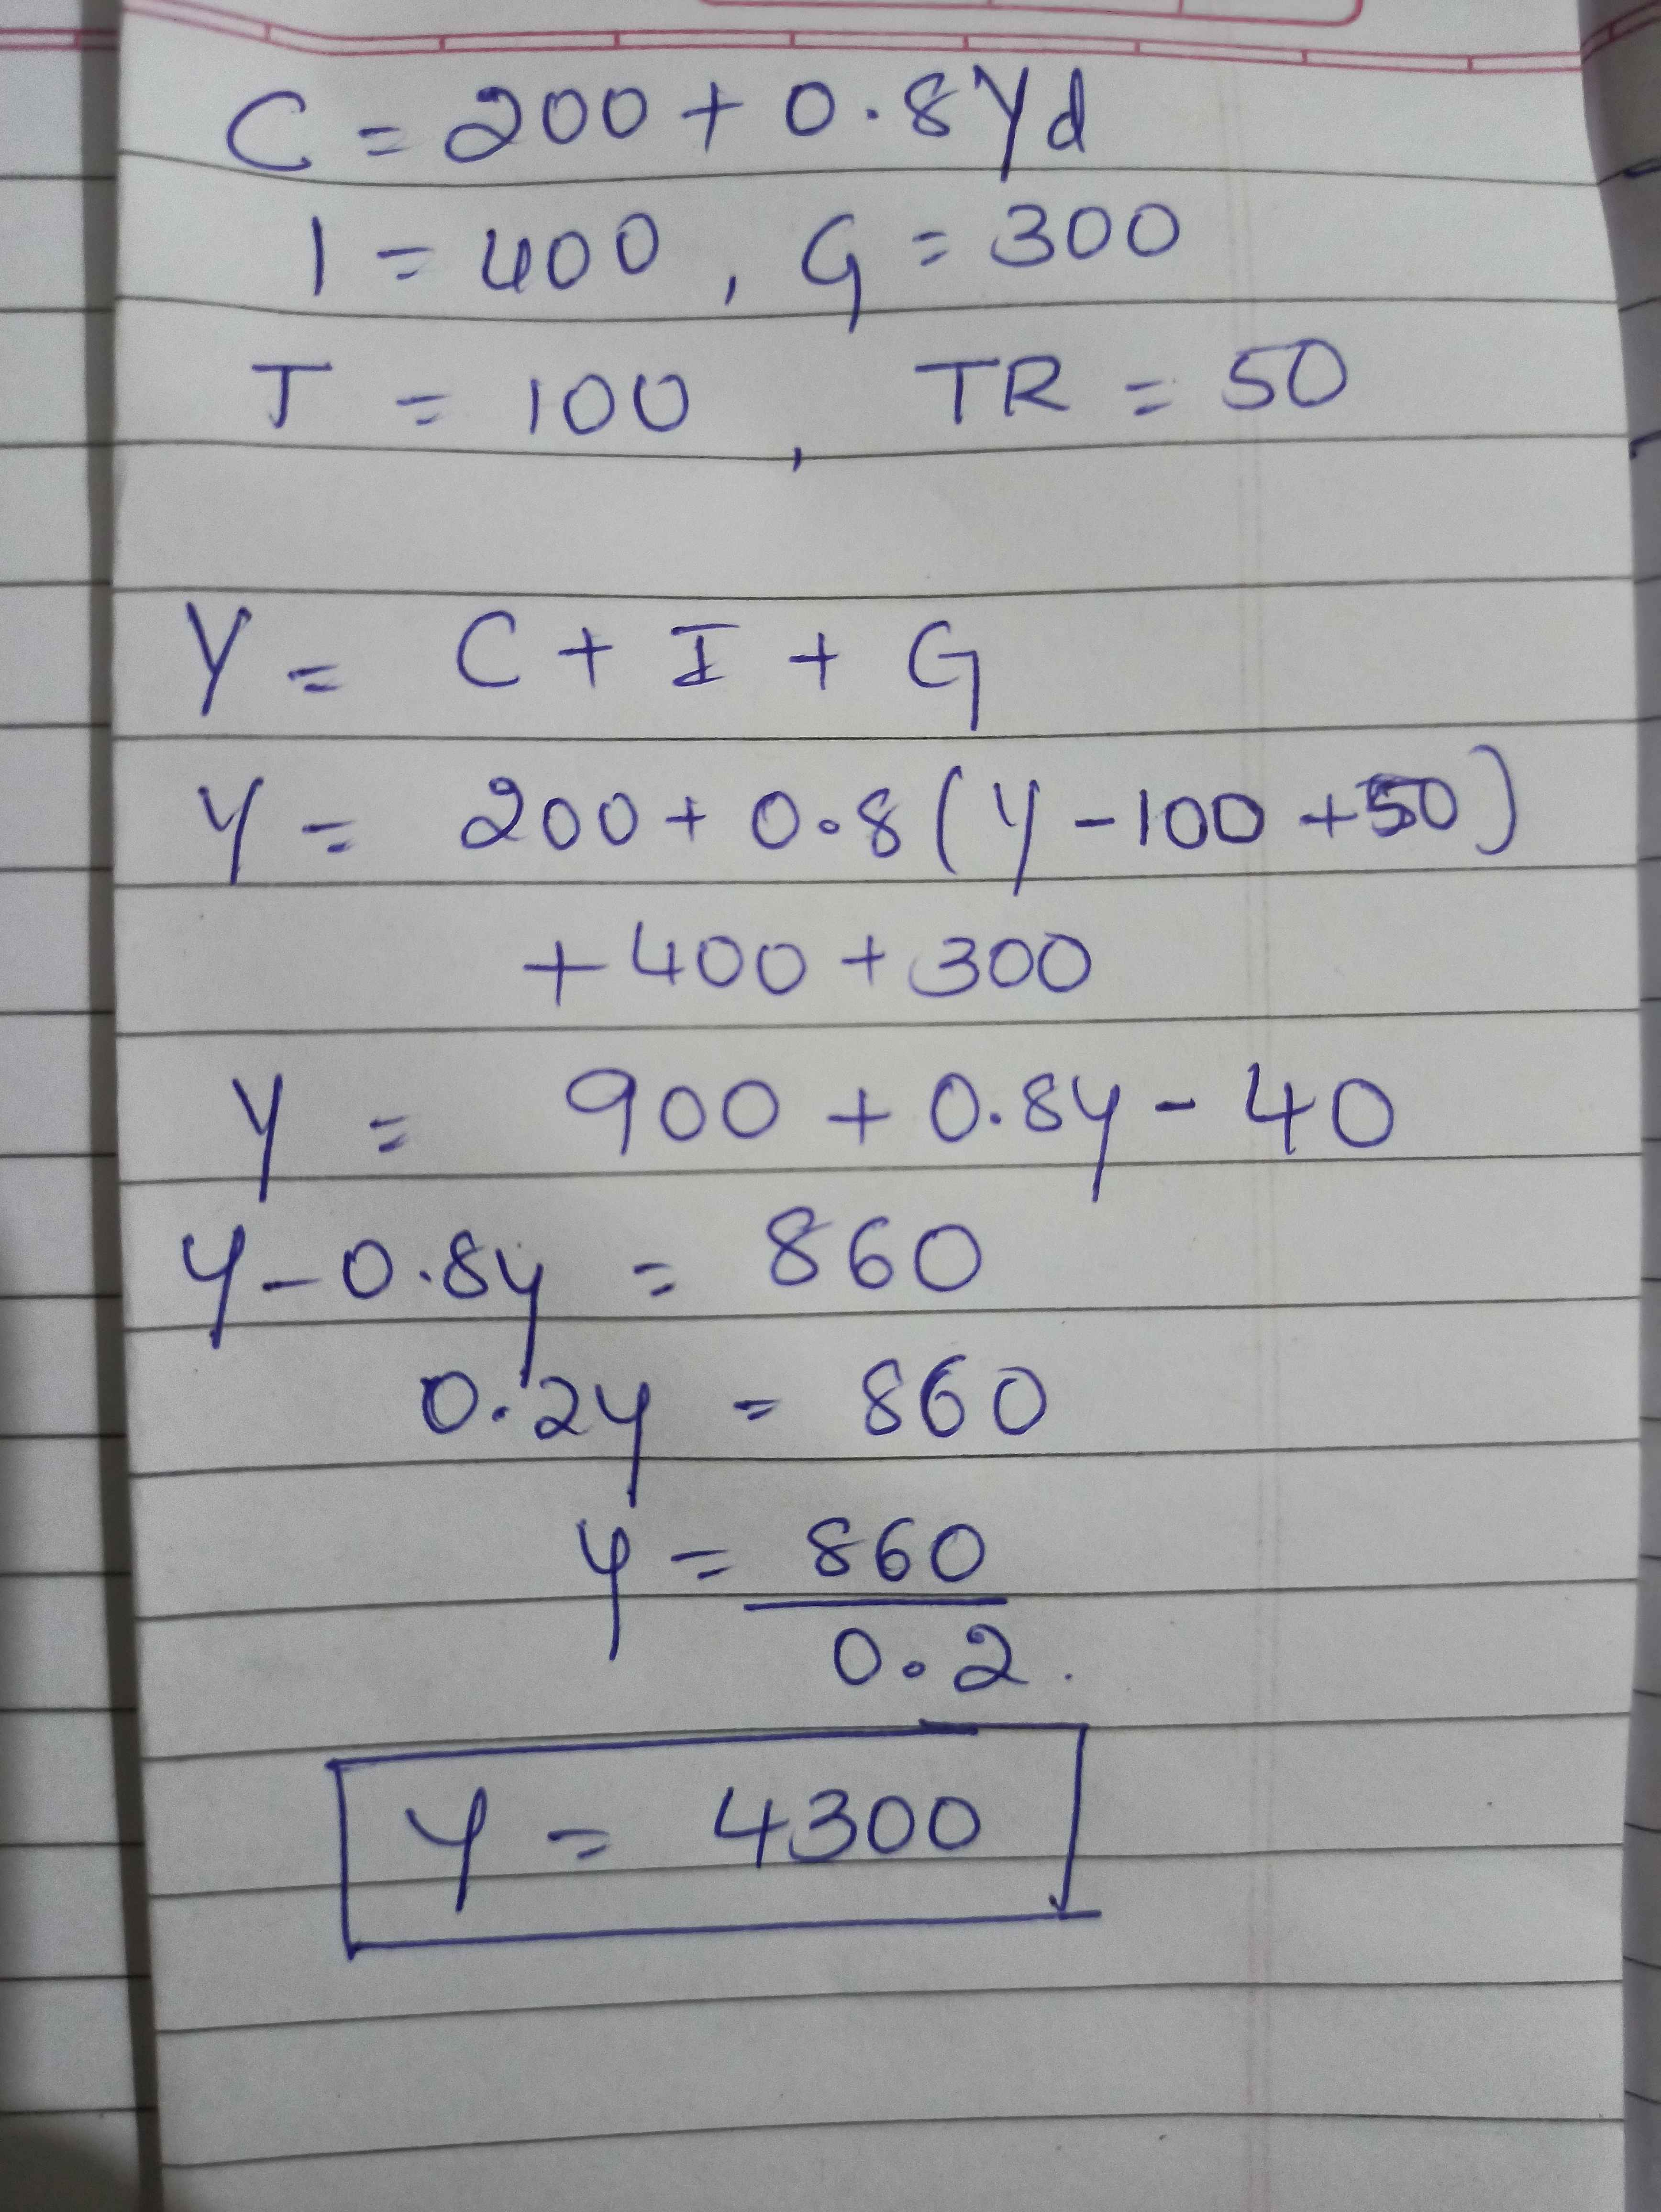 C = 200 + 0.8Yd
I = 400, G = 300
T = 100, TR = 50
Y = C + I + G
Y = 200 + 0.8(Y - 100 + 50)
+ 400 + 300
Y = 900 + 0.8y - 40
y - 0.8y = 860
0.2y = 860
y = 860
0.2.
Y = 4300